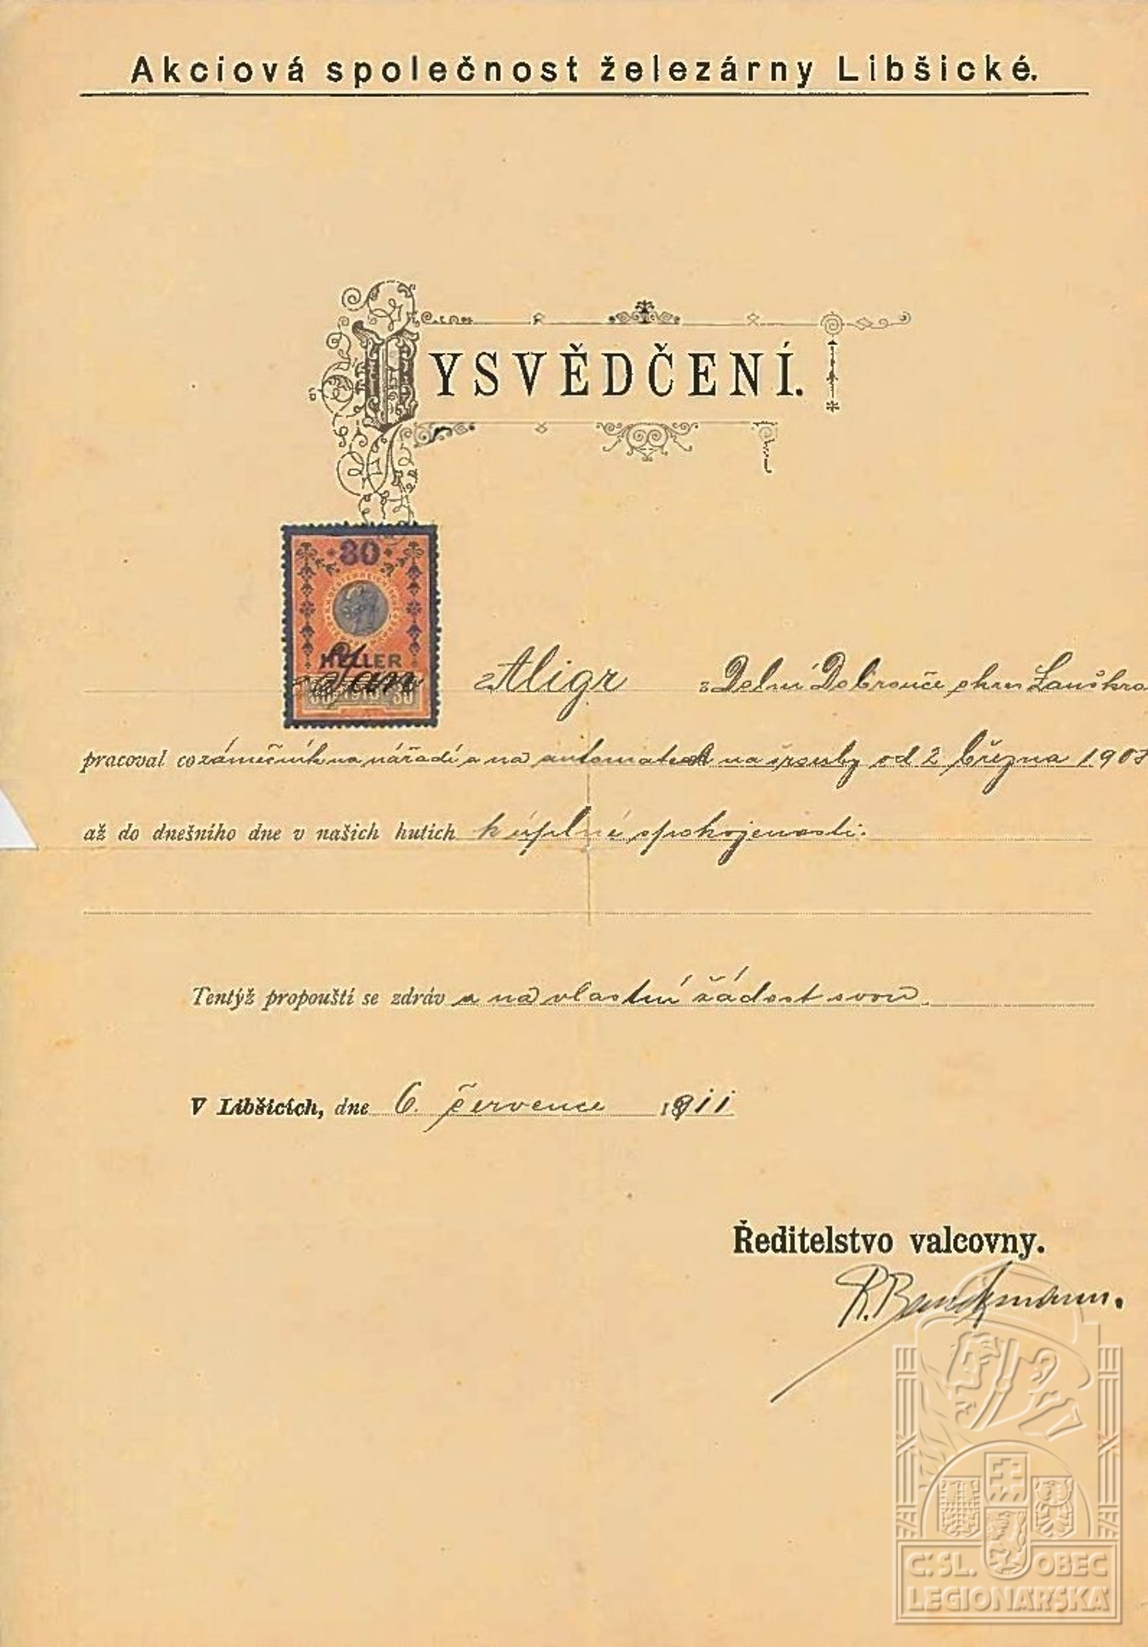 Akciová společnost železárny Libšické.
VYSVĚDČENÍ.
30
HELLER
1910
30 30
Jan Aligr z Dolní Dobrouče okres Lanškro
pracoval co zámečník na nářadí a na automatech na šrouby od 2 března 190
až do dnešního dne v našich hutích k úplné spokojenosti.
Tentýž propouští se zdráv a na vlastní žádost svou.
V Libšicích, dne 6. července 1911
Ředitelstvo valcovny.
Č.SL. OBEC
LEGIONÁŘSKÁ